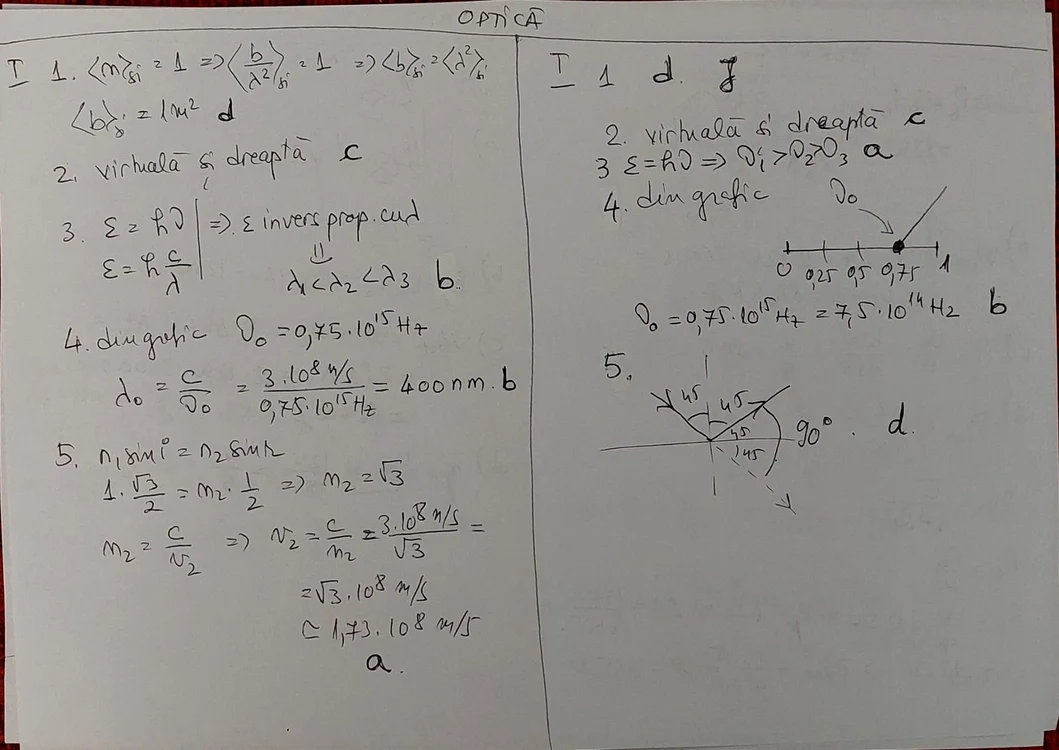 OPTICĂ
I 1. <n>si = 1 => <b/λ²>si = 1 => <b>si = <λ²>si
<b>si = 1m² d
2. virtuală și dreaptă c
3. ε = hν | => ε invers prop. cu λ
ε = h c/λ
λ1 < λ2 < λ3 b.
4. din grafic ν0 = 0,75·10¹⁵ Hz
λ0 = c/ν0 = 3·10⁸ m/s / 0,75·10¹⁵ Hz = 400 nm. b
5. n1 sin i = n2 sin r
1·√3/2 = n2·1/2 => n2 = √3
n2 = c/v2 => v2 = c/n2 = 3·10⁸ m/s / √3 =
= √3·10⁸ m/s
≃ 1,73·10⁸ m/s
a.
I 1 d. J
2. virtuală și dreaptă c
3 ε = hν => ν1 > ν2 > ν3 a
4. din grafic ν0
0 0,25 0,5 0,75 1
ν0 = 0,75·10¹⁵ Hz = 7,5·10¹⁴ Hz b
5.
45 45
45 90° . d.
45